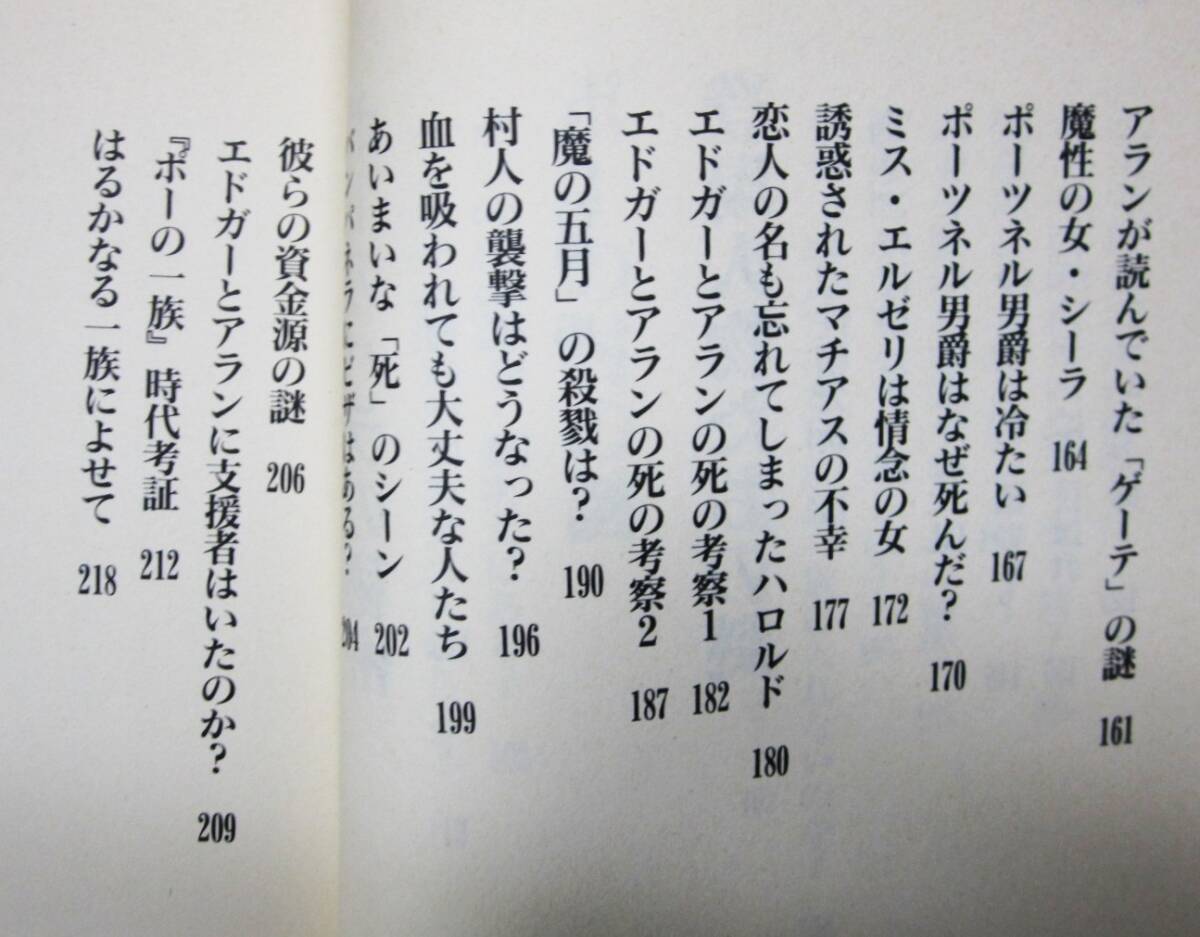 アランが読んでいた「ゲーテ」の謎 161
魔性の女・シーラ 164
ポーツネル男爵は冷たい 167
ポーツネル男爵はなぜ死んだ? 170
ミス・エルゼリは情念の女 172
誘惑されたマチアスの不幸 177
恋人の名も忘れてしまったハロルド 180
エドガーとアランの死の考察1 182
エドガーとアランの死の考察2 187
「魔の五月」の殺戮は? 190
村人の襲撃はどうなった? 196
血を吸われても大丈夫な人たち 199
あいまいな「死」のシーン 202
バンパネラにヒゲはある? 204
彼らの資金源の謎 206
エドガーとアランに支援者はいたのか? 209
『ポーの一族』時代考証 212
はるかなる一族によせて 218